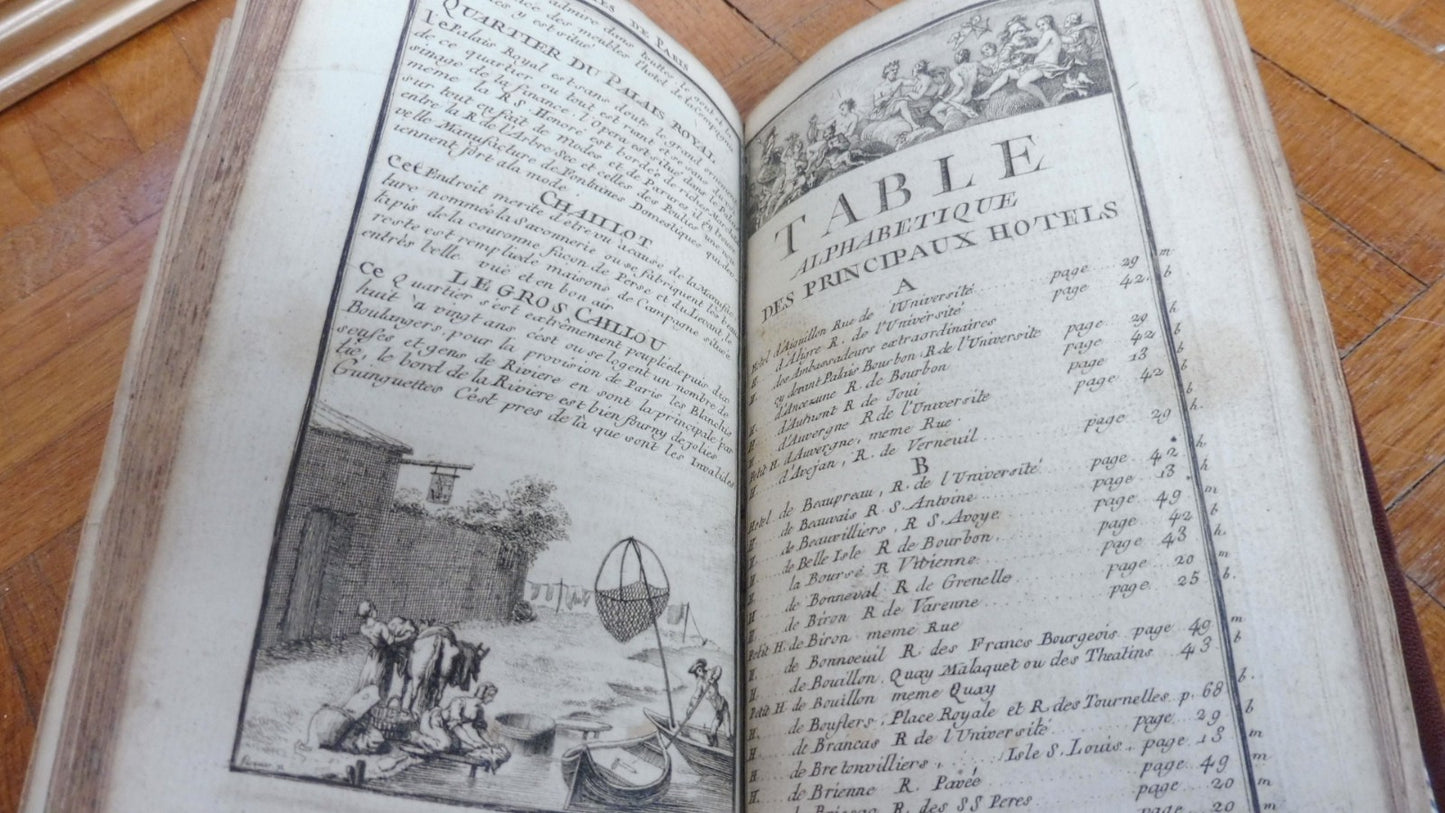 DE PARIS
QUARTIER DU PALAIS ROYAL
Le Palais Royal est sans doute le grand ornement
de ce quartier ou tout est riant et se sent du voi
sinage de la finance, l'opera est situé dans le Palais
même, la R S. Honoré est bordée de riches Marchands
sur tout en fait de Modes et de Parures il y a
entre la R de l'Arbre Sec et celles Des Poulies une nou
velle Manufacture de Fontaines Domestiques qui de
viennent fort a la mode
CHAILLOT
Cet Endroit merite d'etre vu a cause de la Manufac
ture nommée la Savonnerie ou se fabriquent les beaux
tapis de la couronne façon de Perse et du Levant, le
reste est remplie de maisons de Campagne situées
en tres belle vuë et en bon air
LE GROS CAILLOU
Ce Quartier s'est extrêmement peuplé depuis dix
huit a vingt ans c'est ou se logent un nombre de
Boulangers pour la provision de Paris les Blanchis
seuses et gens de Riviere en sont la principale par
tie, le bord de la Riviere est bien fourny de jolies
Guinguettes C'est pres de là que sont les Invalides
TABLE
ALPHABETIQUE
DES PRINCIPAUX HOTELS
A
Hotel d'Aiguillon Rue de l'Université page 29 m
H. d'Aligre R. de l'Université page 42. b
H. des Ambassadeurs extraordinaires
cy devant Palais Bourbon R. de l'Université page 29
H. d'Ancezune R. de Bourbon page 42 b
H. d'Aumont R de Joui page 13 b
H. d'Auvergne R de l'Université page 42 b
Petit H. d'Auvergne, meme Rue
H. d'Avejan, R. de Verneuil page 29 h.
B
Hotel de Beaupreau, R. de l'Université page 42 h
H. de Beauvais R S. Antoine page 13 h
H. de Beauvilliers, R S. Avoye page 49 m
H. de Belle Isle R de Bourbon page 42 b
H. la Bourse R Vivienne page 43 h.
H. de Bonneval R de Grenelle page 20 m
H. de Biron R de Varenne page 25 b.
Petit H. de Biron meme Rue
H. de Bonnoeuil R. des Francs Bourgeois page 49 m
H. de Bouillon, Quay Malaquet ou des Theatins 43 b
Petit H. de Bouillon meme Quay
H. de Bouflers, Place Royale et R des Tournelles p. 68 b.
H. de Brancas R de l'Université page 29 b
H. de Bretonvilliers, Isle S. Louis, page 13 m
H. de Brienne R. Pavée page 49 m
R. des SS Peres page 20 m